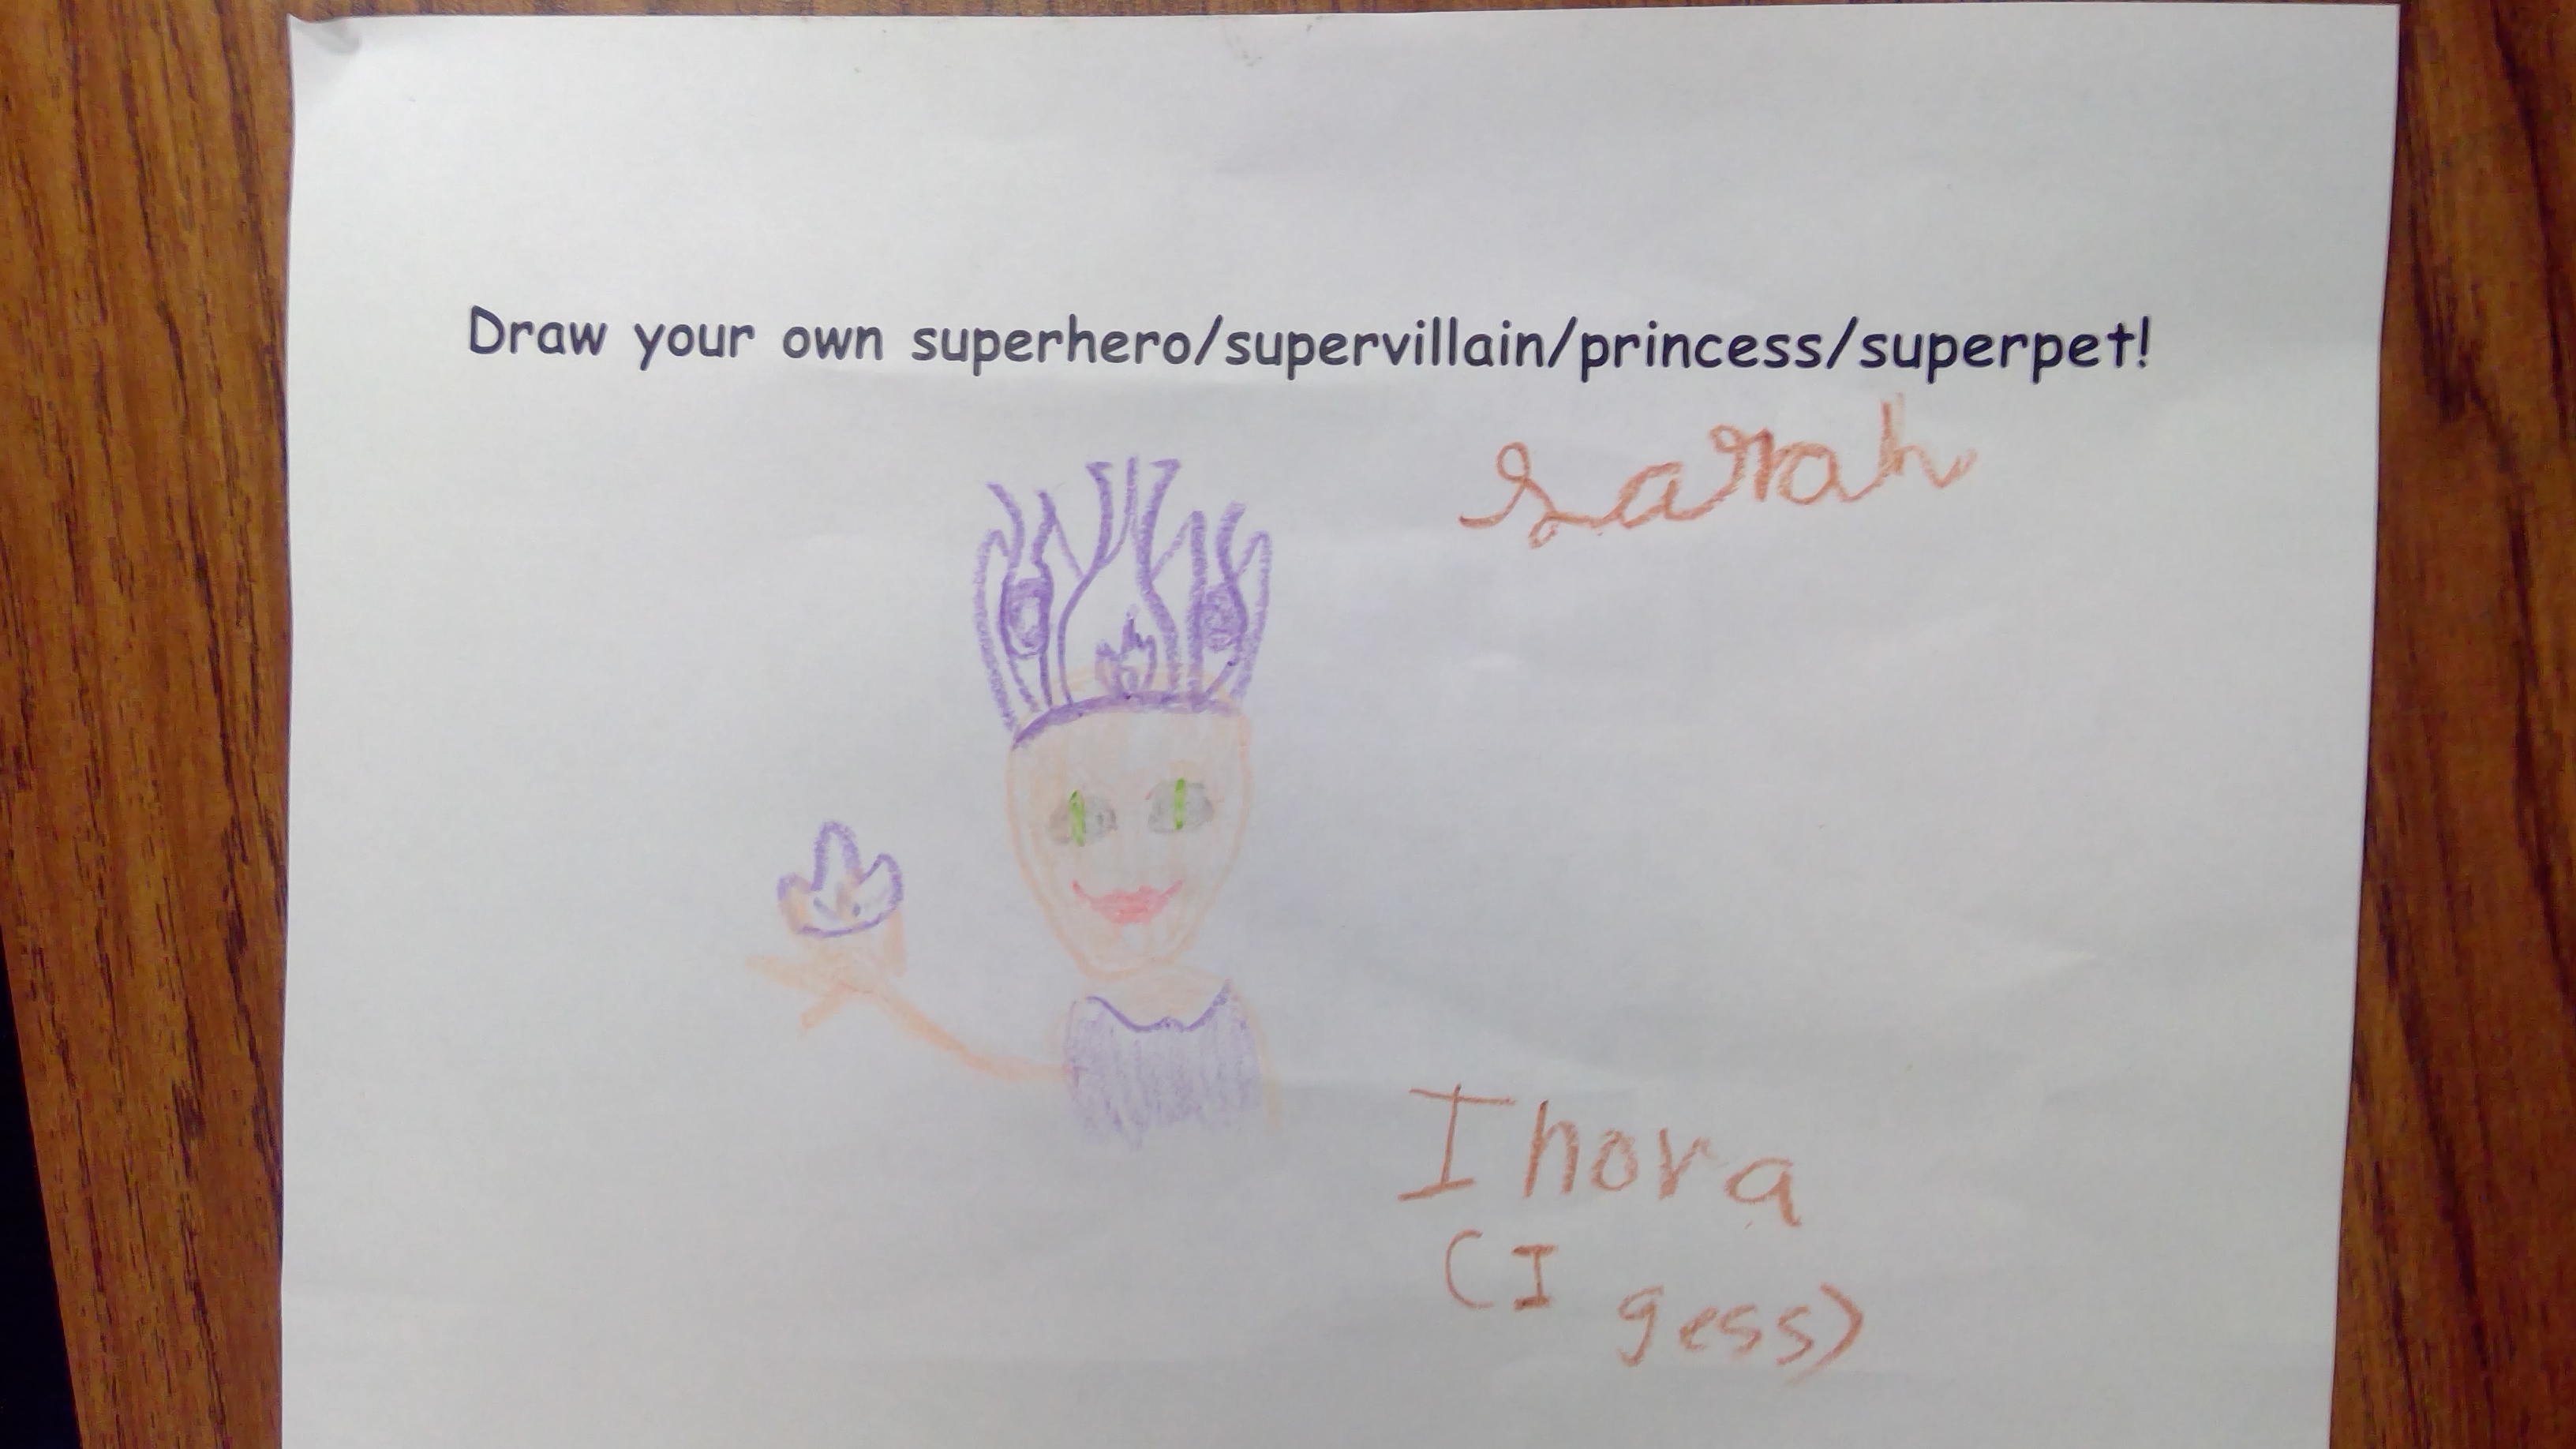 Draw your own superhero/supervillain/princess/superpet!
Sarah
Inora
(I gess)